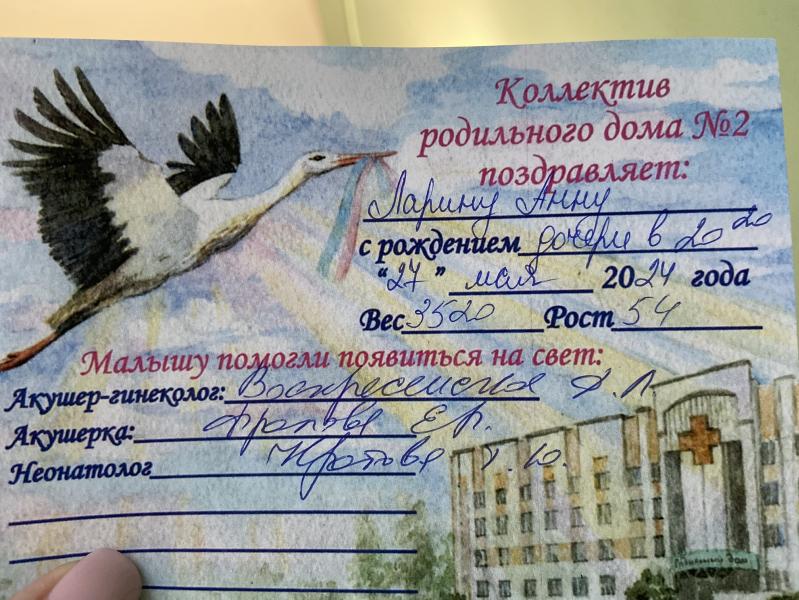 Коллектив
родильного дома №2
поздравляет:
Ларину Анну
с рождением дочери в 20 20
"27" мая 2024 года
Вес 3520 Рост 54
Малышу помогли появиться на свет:
Акушер-гинеколог: Воскресенская А.Л.
Акушерка: Е.
Неонатолог Кротова Т.Ю.
Родильный дом